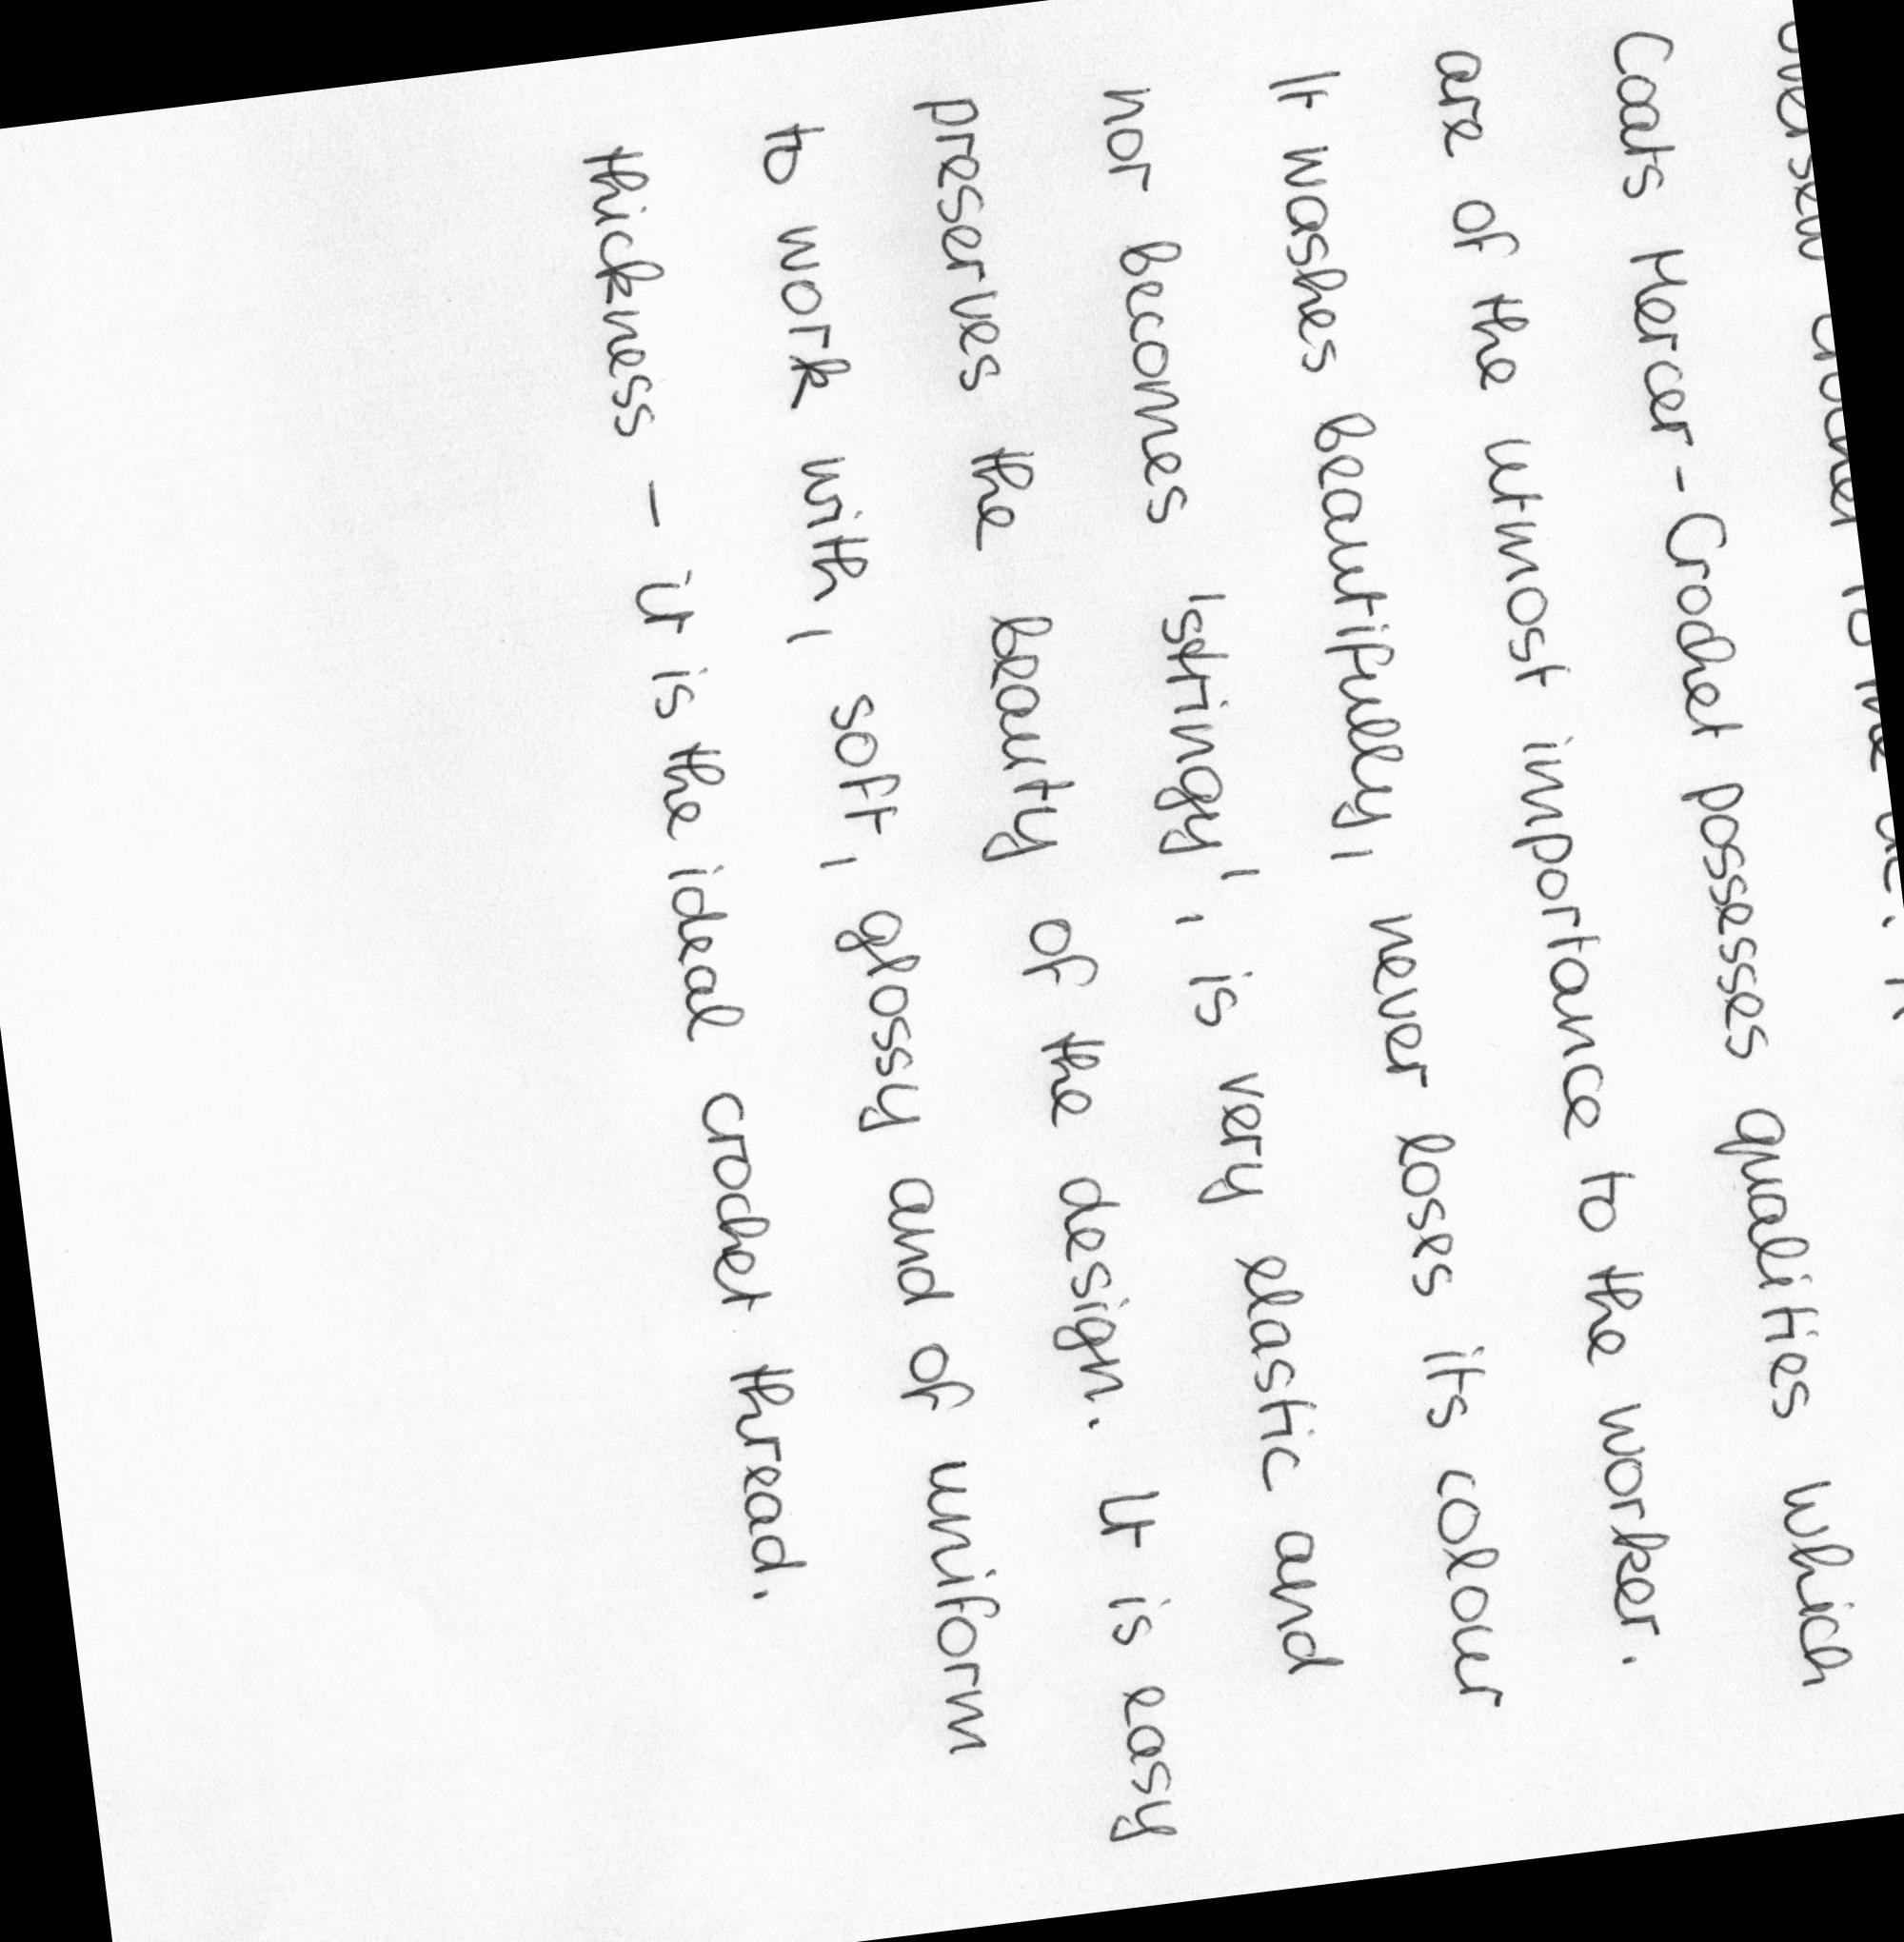 oversew crochet to the
Coats Mercer-Crochet possesses qualities which
are of the utmost importance to the worker.
It washes beautifully, never loses its colour
nor becomes 'stringy', is very elastic and
preserves the beauty of the design. It is easy
to work with, soft, glossy and of uniform
thickness - it is the ideal crochet thread.